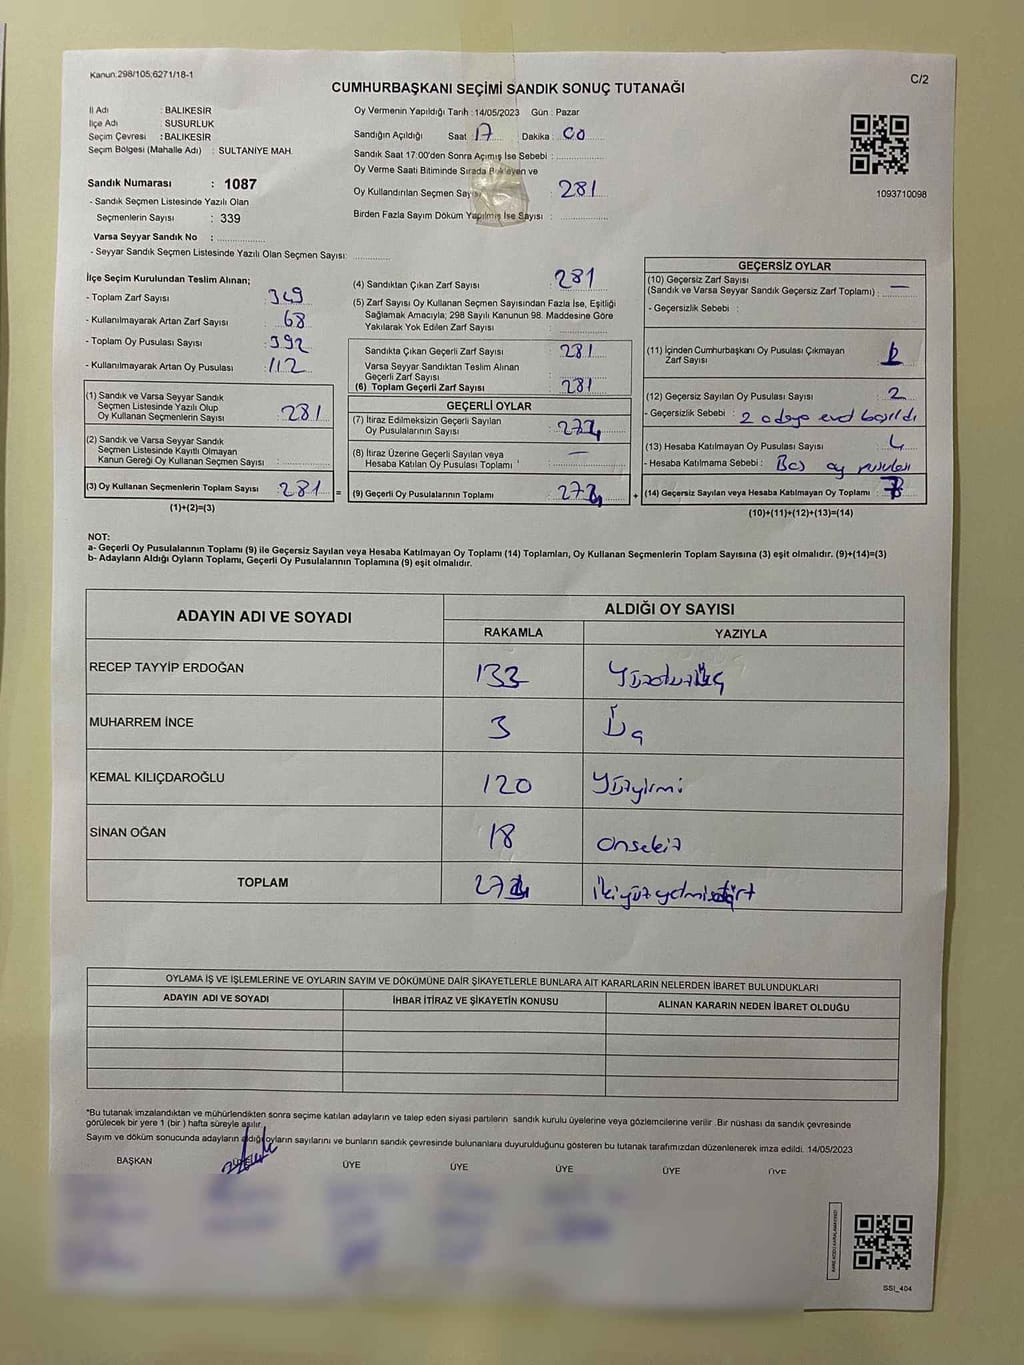 Kanun: 298/105;6271/18-1
C/2
CUMHURBAŞKANI SEÇİMİ SANDIK SONUÇ TUTANAĞI
İl Adı : BALIKESİR
İlçe Adı : SUSURLUK
Seçim Çevresi : BALIKESİR
Seçim Bölgesi (Mahalle Adı) : SULTANİYE MAH.
Sandık Numarası : 1087
- Sandık Seçmen Listesinde Yazılı Olan
Seçmenlerin Sayısı : 339
Varsa Seyyar Sandık No : ..................
- Seyyar Sandık Seçmen Listesinde Yazılı Olan Seçmen Sayısı: ............
Oy Vermenin Yapıldığı Tarih : 14/05/2023 Gün : Pazar
Sandığın Açıldığı Saat : 17 Dakika : 00
Sandık Saat 17:00'den Sonra Açımış İse Sebebi : ................
Oy Verme Saati Bitiminde Sırada Bekleyen ve
Oy Kullandırılan Seçmen Sayısı : 281
Birden Fazla Sayım Döküm Yapılmış İse Sayısı : ................
1093710098
İlçe Seçim Kurulundan Teslim Alınan;
- Toplam Zarf Sayısı : 349
- Kullanılmayarak Artan Zarf Sayısı : 68
- Toplam Oy Pusulası Sayısı : 392
- Kullanılmayarak Artan Oy Pusulası : 112
(1) Sandık ve Varsa Seyyar Sandık
Seçmen Listesinde Yazılı Olup
Oy Kullanan Seçmenlerin Sayısı : 281
(2) Sandık ve Varsa Seyyar Sandık
Seçmen Listesinde Kayıtlı Olmayan
Kanun Gereği Oy Kullanan Seçmen Sayısı : ............
(3) Oy Kullanan Seçmenlerin Toplam Sayısı : 281 =
(1)+(2)=(3)
(4) Sandıktan Çıkan Zarf Sayısı : 281
(5) Zarf Sayısı Oy Kullanan Seçmen Sayısından Fazla İse, Eşitliği
Sağlamak Amacıyla; 298 Sayılı Kanunun 98. Maddesine Göre
Yakılarak Yok Edilen Zarf Sayısı : ............
Sandıkta Çıkan Geçerli Zarf Sayısı : 281
Varsa Seyyar Sandıktan Teslim Alınan
Geçerli Zarf Sayısı : ............
(6) Toplam Geçerli Zarf Sayısı : 281
GEÇERLİ OYLAR
(7) İtiraz Edilmeksizin Geçerli Sayılan
Oy Pusulalarının Sayısı : 274
(8) İtiraz Üzerine Geçerli Sayılan veya
Hesaba Katılan Oy Pusulası Toplamı : —
(9) Geçerli Oy Pusulalarının Toplamı : 274 +
GEÇERSİZ OYLAR
(10) Geçersiz Zarf Sayısı
(Sandık ve Varsa Seyyar Sandık Geçersiz Zarf Toplamı) : —
- Geçersizlik Sebebi :
(11) İçinden Cumhurbaşkanı Oy Pusulası Çıkmayan
Zarf Sayısı :
(12) Geçersiz Sayılan Oy Pusulası Sayısı : 2
- Geçersizlik Sebebi : 2 adaya evd basıldı
(13) Hesaba Katılmayan Oy Pusulası Sayısı : 4
- Hesaba Katılmama Sebebi : Boş oy pusulası
(14) Geçersiz Sayılan veya Hesaba Katılmayan Oy Toplamı :
(10)+(11)+(12)+(13)=(14)
NOT:
a- Geçerli Oy Pusulalarının Toplamı (9) ile Geçersiz Sayılan veya Hesaba Katılmayan Oy Toplamı (14) Toplamları, Oy Kullanan Seçmenlerin Toplam Sayısına (3) eşit olmalıdır. (9)+(14)=(3)
b- Adayların Aldığı Oyların Toplamı, Geçerli Oy Pusulalarının Toplamına (9) eşit olmalıdır.
ADAYIN ADI VE SOYADI
ALDIĞI OY SAYISI
RAKAMLA YAZIYLA
RECEP TAYYİP ERDOĞAN 133 Yüzotuzüç
MUHARREM İNCE 3 Üç
KEMAL KILIÇDAROĞLU 120 Yüzyirmi
SİNAN OĞAN 18 Onsekiz
TOPLAM 274 İkiyüzyetmişdört
OYLAMA İŞ VE İŞLEMLERİNE VE OYLARIN SAYIM VE DÖKÜMÜNE DAİR ŞİKAYETLERLE BUNLARA AİT KARARLARIN NELERDEN İBARET BULUNDUKLARI
ADAYIN ADI VE SOYADI İHBAR İTİRAZ VE ŞİKAYETİN KONUSU ALINAN KARARIN NEDEN İBARET OLDUĞU
*Bu tutanak imzalandıktan ve mühürlendikten sonra seçime katılan adayların ve talep eden siyasi partilerin sandık kurulu üyelerine veya gözlemcilerine verilir. Bir nüshası da sandık çevresinde
görülecek bir yere 1 (bir ) hafta süreyle asılır.
Sayım ve döküm sonucunda adayların aldığı oyların sayılarını ve bunların sandık çevresinde bulunanlara duyurulduğunu gösteren bu tutanak tarafımızdan düzenlenerek imza edildi. 14/05/2023
BAŞKAN ÜYE ÜYE ÜYE ÜYE ÜYE
SSİ_404